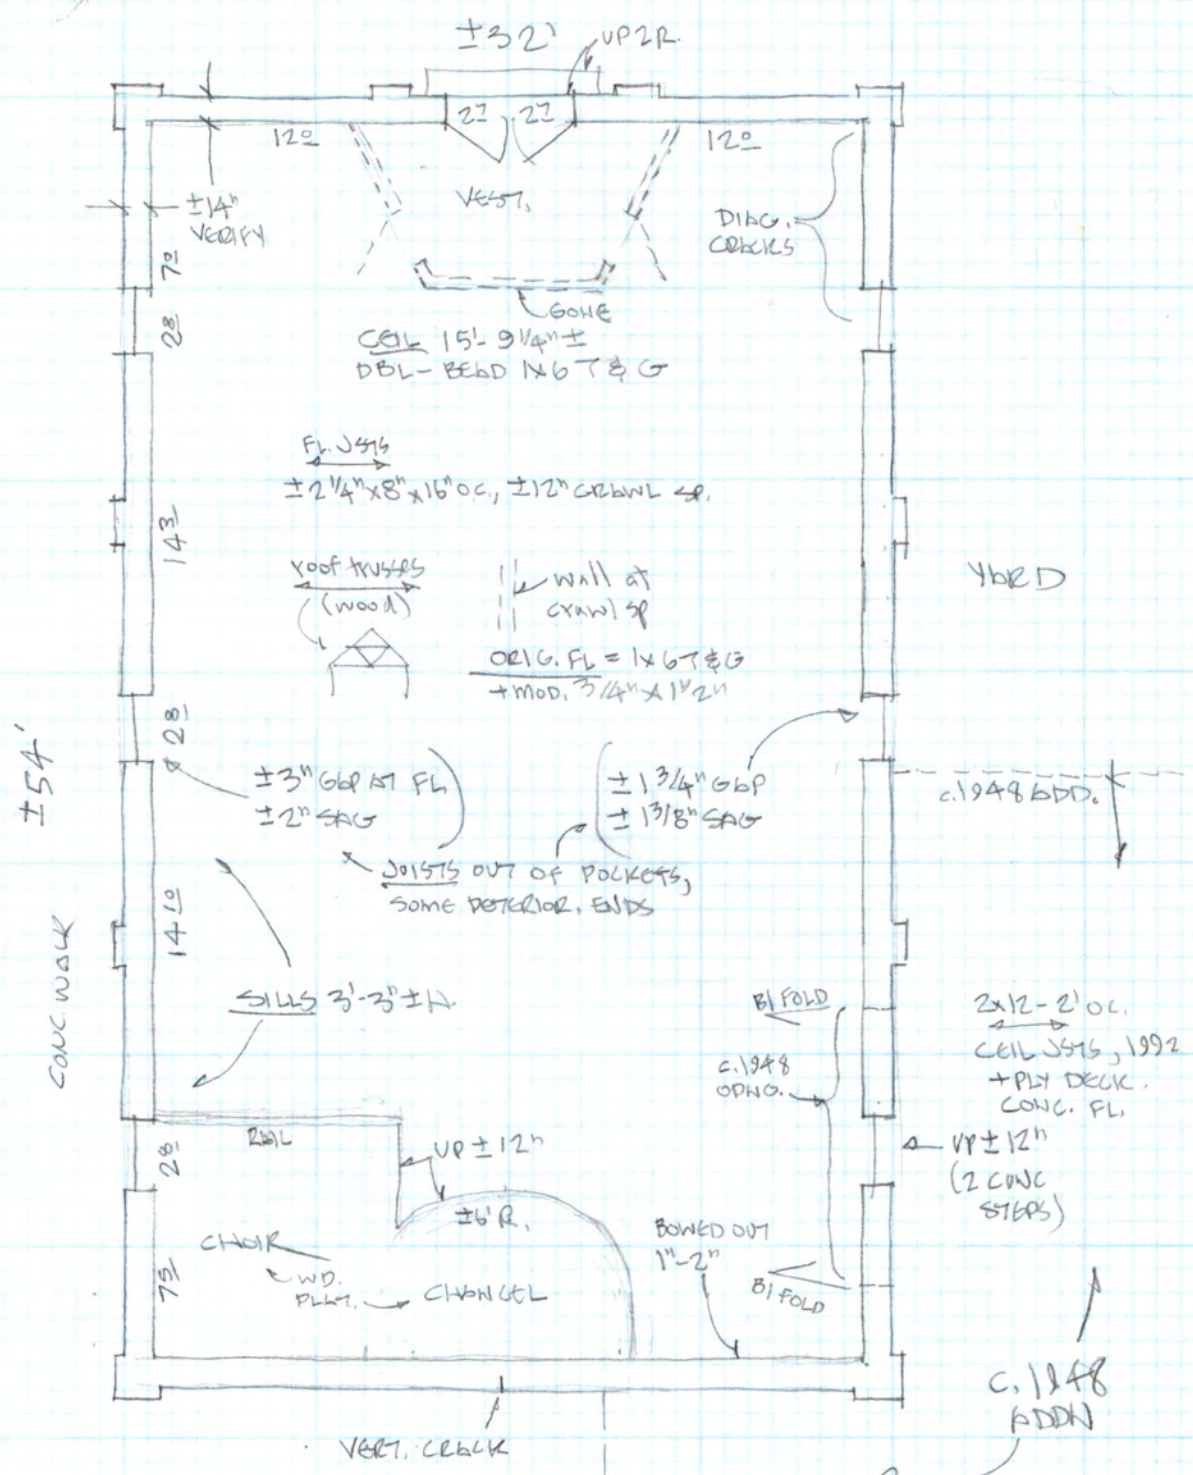 ±32'
UP 2 R.
2⁷ 2⁷
12⁰
12⁰
VEST.
±14"
VERIFY
DIAG.
CRACKS
7⁰
2⁸
GONE
CEIL 15'-9 1/4" ±
DBL-BEAD 1x6 T & G
FL. JSTS
±2 1/4" x 8" x 16" O.C., ±12" CRAWL SP.
14³
roof trusses
(wood)
wall at
crawl sp
YARD
ORIG. FL = 1x6 T & G
+ MOD. 3/4" x 1 1/2"
2⁸
±54'
±3" GAP AT FL
±2" SAG
±1 3/4" GAP
±1 3/8" SAG
c.1948 ADD.
JOISTS OUT OF POCKETS,
SOME DETERIOR. ENDS
14¹⁰
CONC. WALK
SILLS 3'-3" ± H.
BIFOLD
2x12 - 2' O.C.
CEIL JSTS, 1992
+ PLY DECK
CONC. FL.
c.1948
OPNG.
RAIL
2⁸
UP ±12"
UP ±12"
(2 CONC
STEPS)
±6' R.
BOWED OUT
1"-2"
CHOIR
WD.
PLAT.
CHANCEL
7⁵
BIFOLD
C. 1948
ADDN
VERT. CRACK